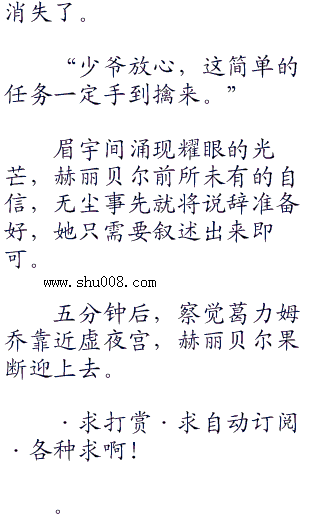 消失了。
“少爷放心，这简单的
任务一定手到擒来。”
眉宇间涌现耀眼的光
芒，赫丽贝尔前所未有的自
信，无尘事先就将说辞准备
好，她只需要叙述出来即
可。
www.shu008.com
五分钟后，察觉葛力姆
乔靠近虚夜宫，赫丽贝尔果
断迎上去。
·求打赏·求自动订阅
·各种求啊！
。